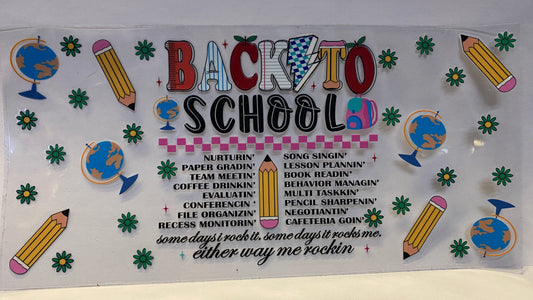 BACK TO
SCHOOL
NURTURIN'
PAPER GRADIN'
TEAM MEETIN'
COFFEE DRINKIN'
EVALUATIN'
CONFERENCIN'
FILE ORGANIZIN'
RECESS MONITORIN'
SONG SINGIN'
LESSON PLANNIN'
BOOK READIN'
BEHAVIOR MANAGIN'
MULTI TASKKIN'
PENCIL SHARPENIN'
NEGOTIANTIN'
CAFETERIA GOIN'
some days i rock it, some days it rocks me,
either way me rockin